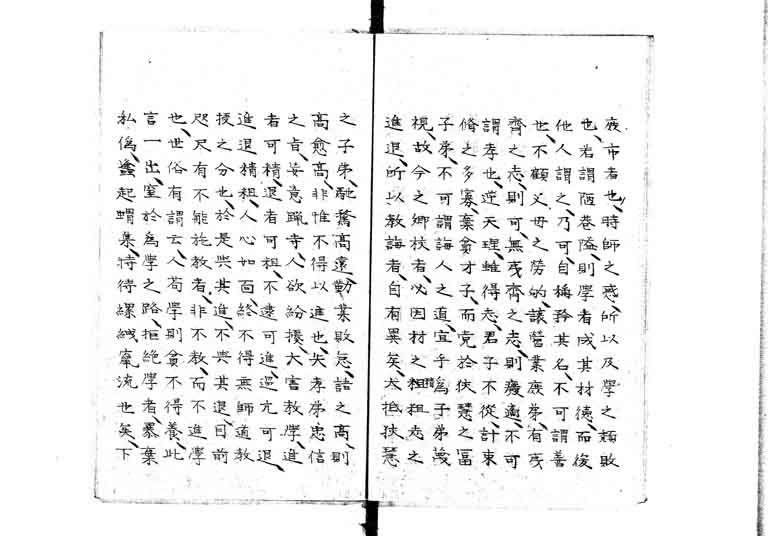 夜市者也、時師之惑、所以及學之頽敗
也、若謂陋巷隘、則學者成其材德、而後
他人謂之乃可、自稱矜其名、不可謂善
也、不顧父母之勞的讓營業廢弟、有戔
齊之志、則可、無戔齊之志、則癈適、不可
謂孝也、逆天理、雖得志、君子不從、計束
脩之多寡、棄貧才子、而党於俠慧之冨
子弟、不可謂誨人之道、宜乎爲子弟蔑
視、故今之鄉校者、必因材之精粗志之
進退、所以教誨者、自有異矣、大抵俠慧
之子弟、馳騖高遠、勤業敗怠、詰之高、則
高愈高、非惟不得以進也、失孝弟忠信
之貞、妄意躐寺、人欲紛擾、大害教學、進
者可精、退者可粗、不遠可進、還亢可退、
進退精粗、人心如面、終不得無師適教
授之分也、於是與其進、不與其退、目前
咫尺有不能施教者、非不教、而不進學
也、世俗有謂云、人苟學則貧不得養、此
言一出、窒於爲學之路、拒絶學者、暴棄
私僞、蠭起蝟集、特待縲絏竄流也矣、下